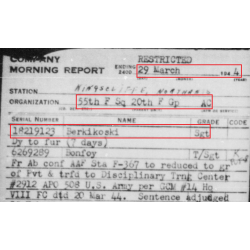 COMPANY
MORNING REPORT
ENDING
RESTRICTED
29 March 1944
STATION
ORGANIZATION 55th F Sq 20th F Gp AC
SERIAL NUMBER NAME GRADE CODE
18219123 Serkikoski Sgt
Dy to fur (7 days)
6269289 Bonfoy T/Sgt
Fr Ab conf AAF Sta F-367 to reduced to gr
of Pvt & trfd to Disciplinary Trng Center
#2912 APO 508 U.S. Army per GCM #14 Hq
VIII FC dtd 20 Mar 44. Sentence adjudged